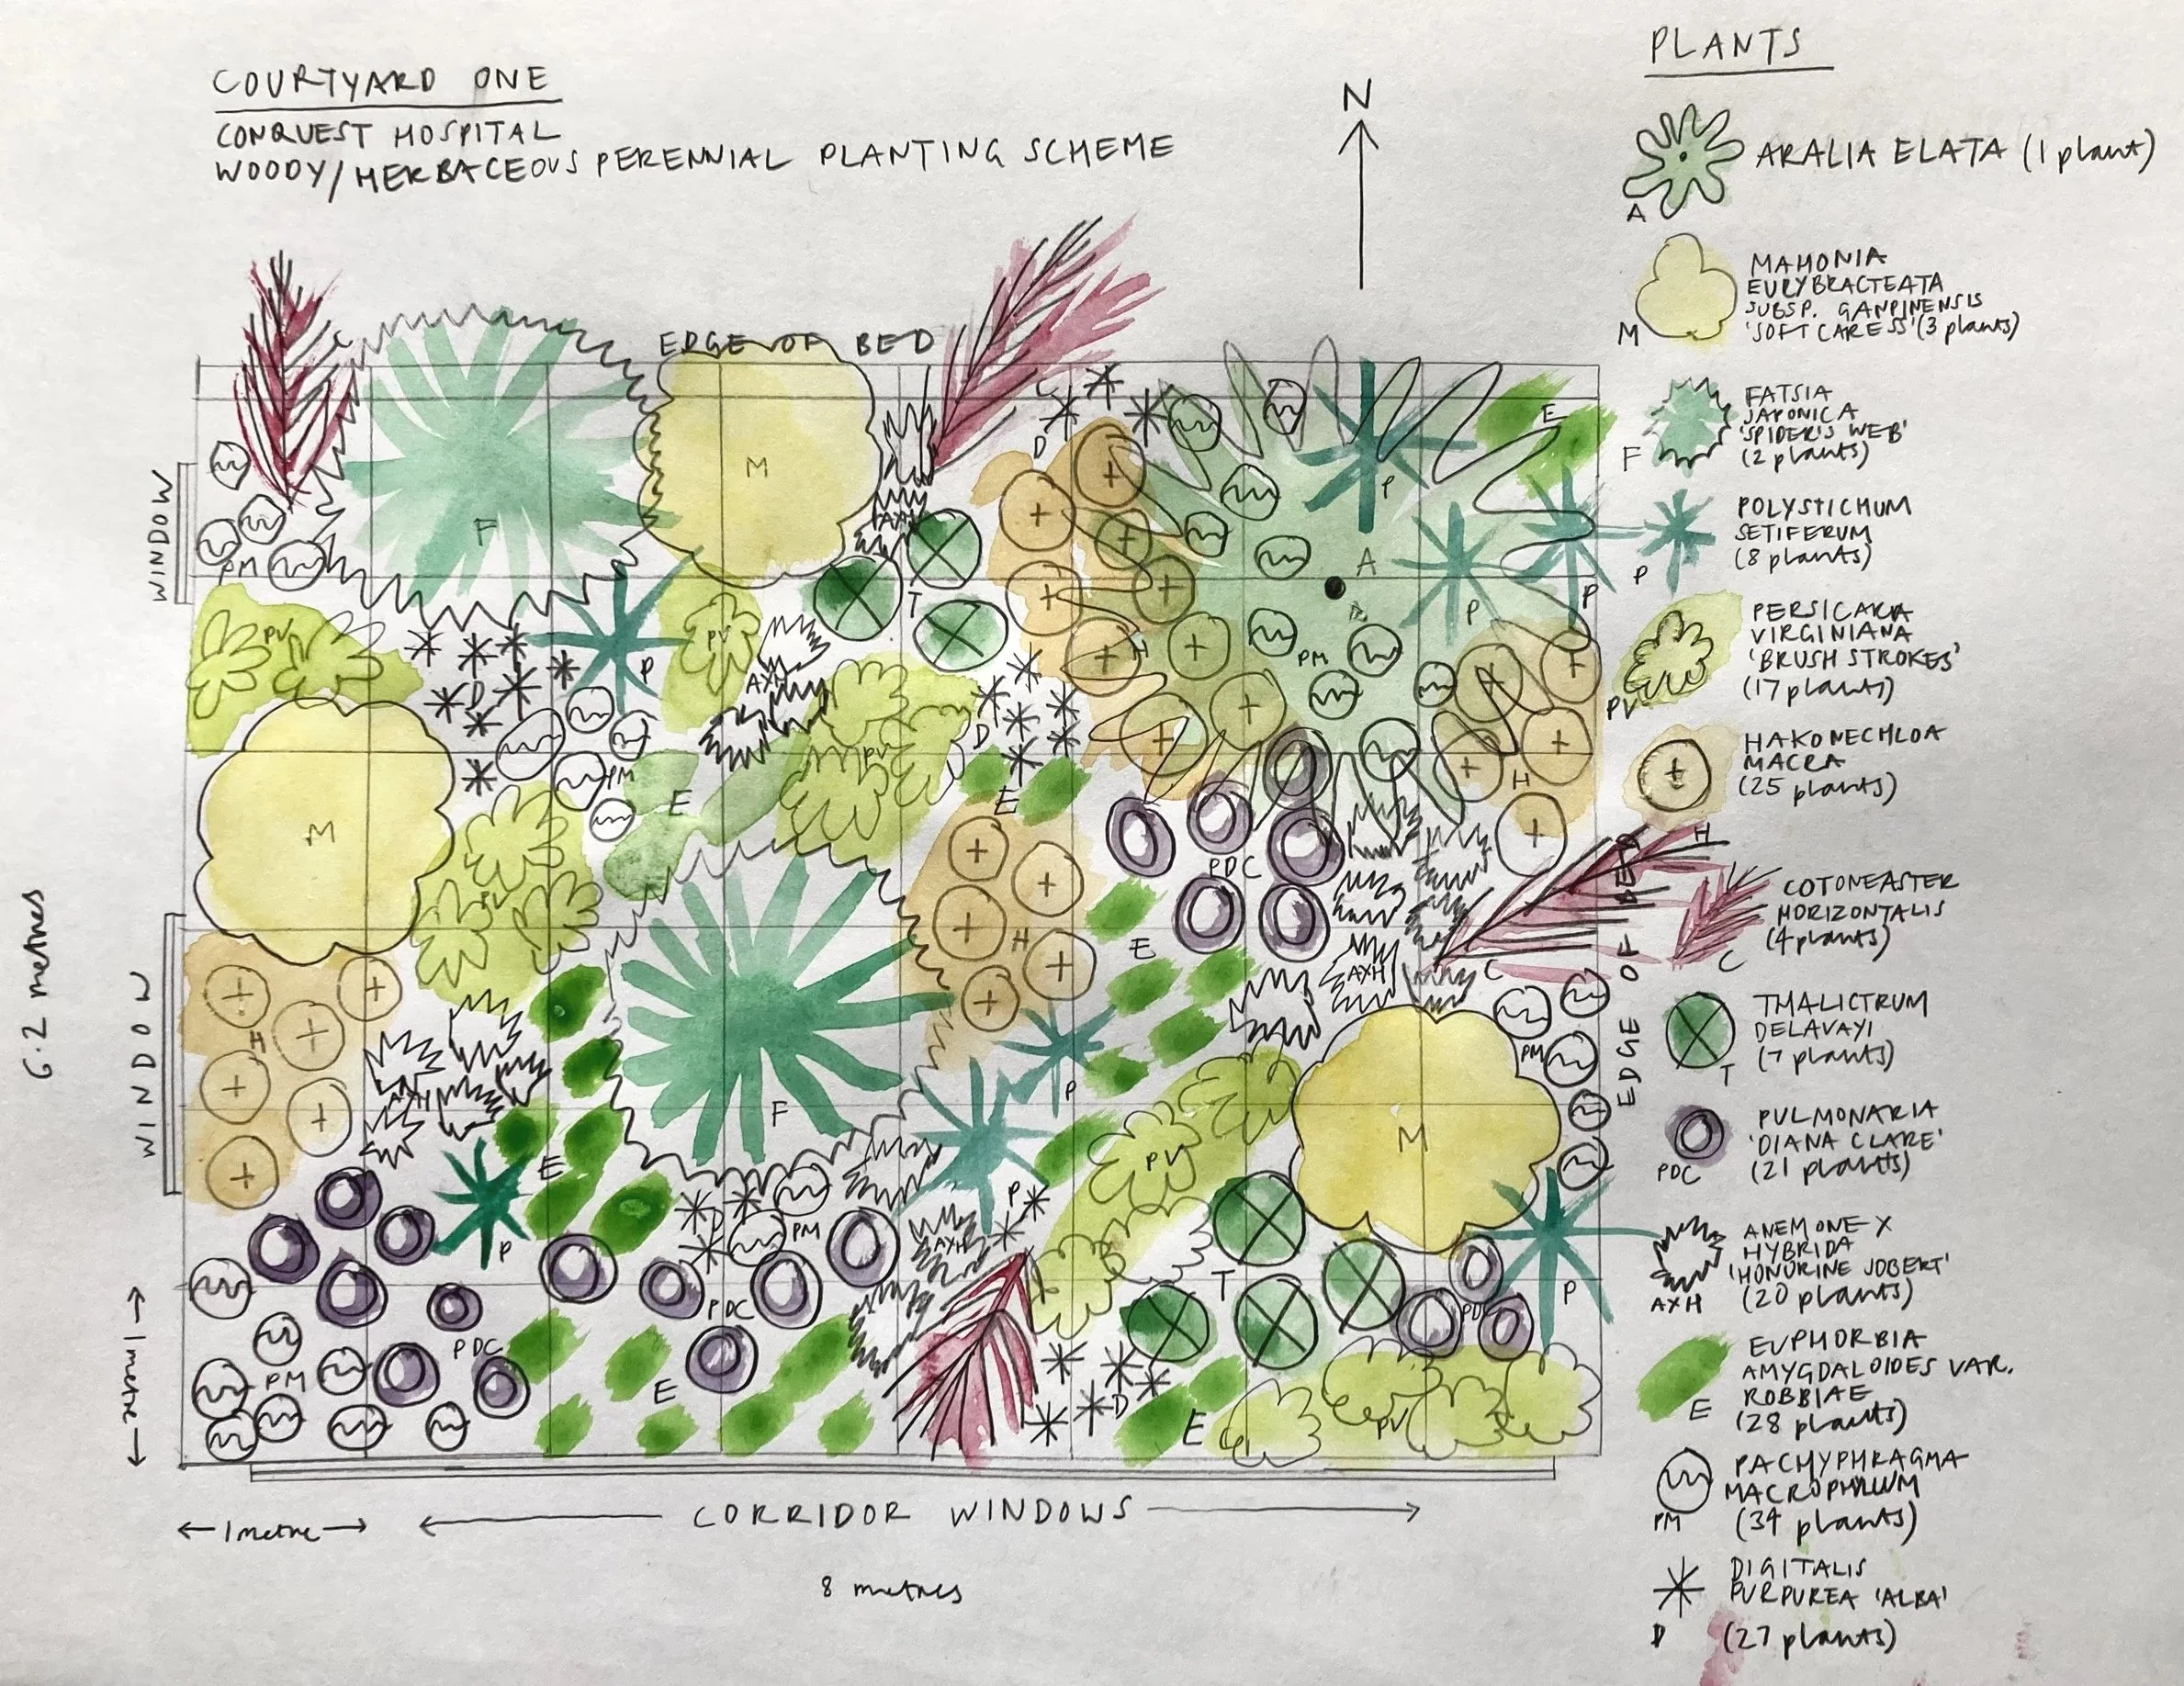 COURTYARD ONE
CONQUEST HOSPITAL
WOODY/HERBACEOUS PERENNIAL PLANTING SCHEME
N
EDGE OF BED
C
C
D
E
M
P
F
AXH
T
A
P
P
WINDOW
PM
PV
PV
H
PM
P
D
AXH
PV
D
PM
E
E
H
M
PV
PDC
H
E
AXH
C
EDGE OF BED
PM
6.2 metres
WINDOW
H
AXH
F
P
PV
M
E
P
D
PM
P
AXH
T
P
PDC
PDC
PDC
PM
E
C
D
E
PV
1 metre
← 1 metre →
CORRIDOR WINDOWS
8 metres
PLANTS
ARALIA ELATA (1 plant)
A
MAHONIA
EURYBRACTEATA
SUBSP. GANPINENSIS
'SOFT CARESS' (3 plants)
M
FATSIA
JAPONICA
'SPIDER'S WEB'
(2 plants)
F
POLYSTICHUM
SETIFERUM
(8 plants)
P
PERSICARIA
VIRGINIANA
'BRUSH STROKES'
(17 plants)
PV
HAKONECHLOA
MACRA
(25 plants)
H
COTONEASTER
HORIZONTALIS
(4 plants)
C
THALICTRUM
DELAVAYI
(7 plants)
T
PULMONARIA
'DIANA CLARE'
(21 plants)
PDC
ANEMONE X
HYBRIDA
'HONORINE JOBERT'
(20 plants)
AXH
EUPHORBIA
AMYGDALOIDES VAR.
ROBBIAE
(28 plants)
E
PACHYPHRAGMA
MACROPHYLLUM
(34 plants)
PM
DIGITALIS
PURPUREA 'ALBA'
(27 plants)
D